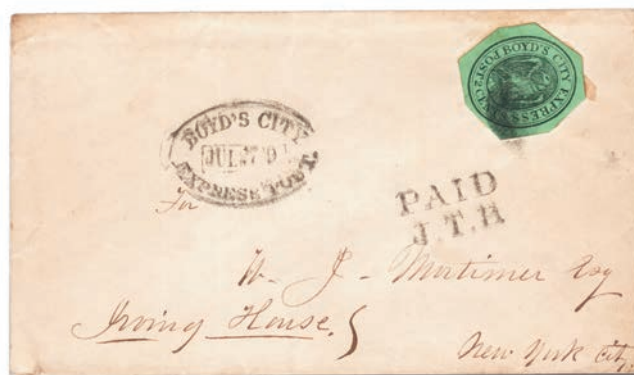 BOYD'S CITY EXPRESS POST
BOYD'S CITY
JUL 27
EXPRESS POST.
PAID
J.T.B
For
W. J. Mortimer Esq
Irving House,
New York City